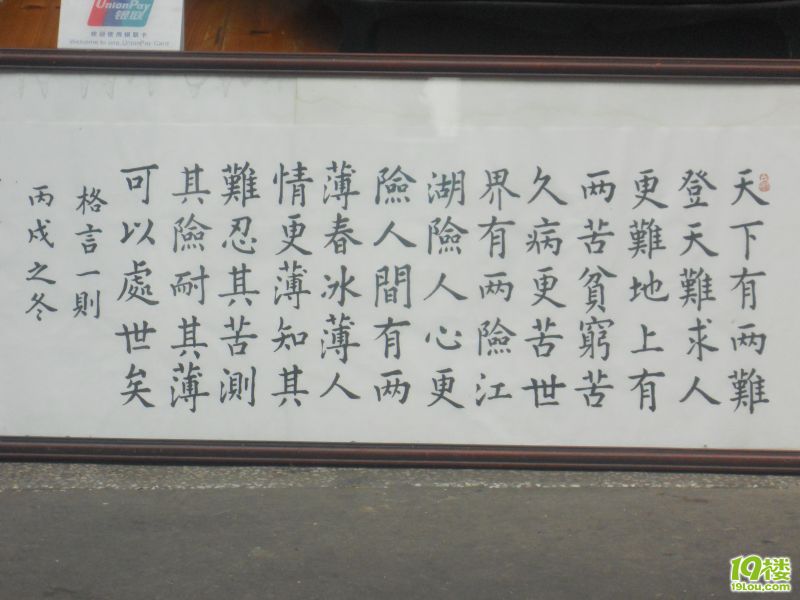 天下有两難
登天難求人
更難地上有
两苦貧窮苦
久病更苦世
界有两險江
湖險人心更
險人間有两
薄春冰薄人
情更薄知其
難忍其苦測
其險耐其薄
可以處世矣
格言一則
丙戌之冬
UnionPay
银联
欢迎使用银联卡
Welcome to use UnionPay Card
19楼
19lou.com